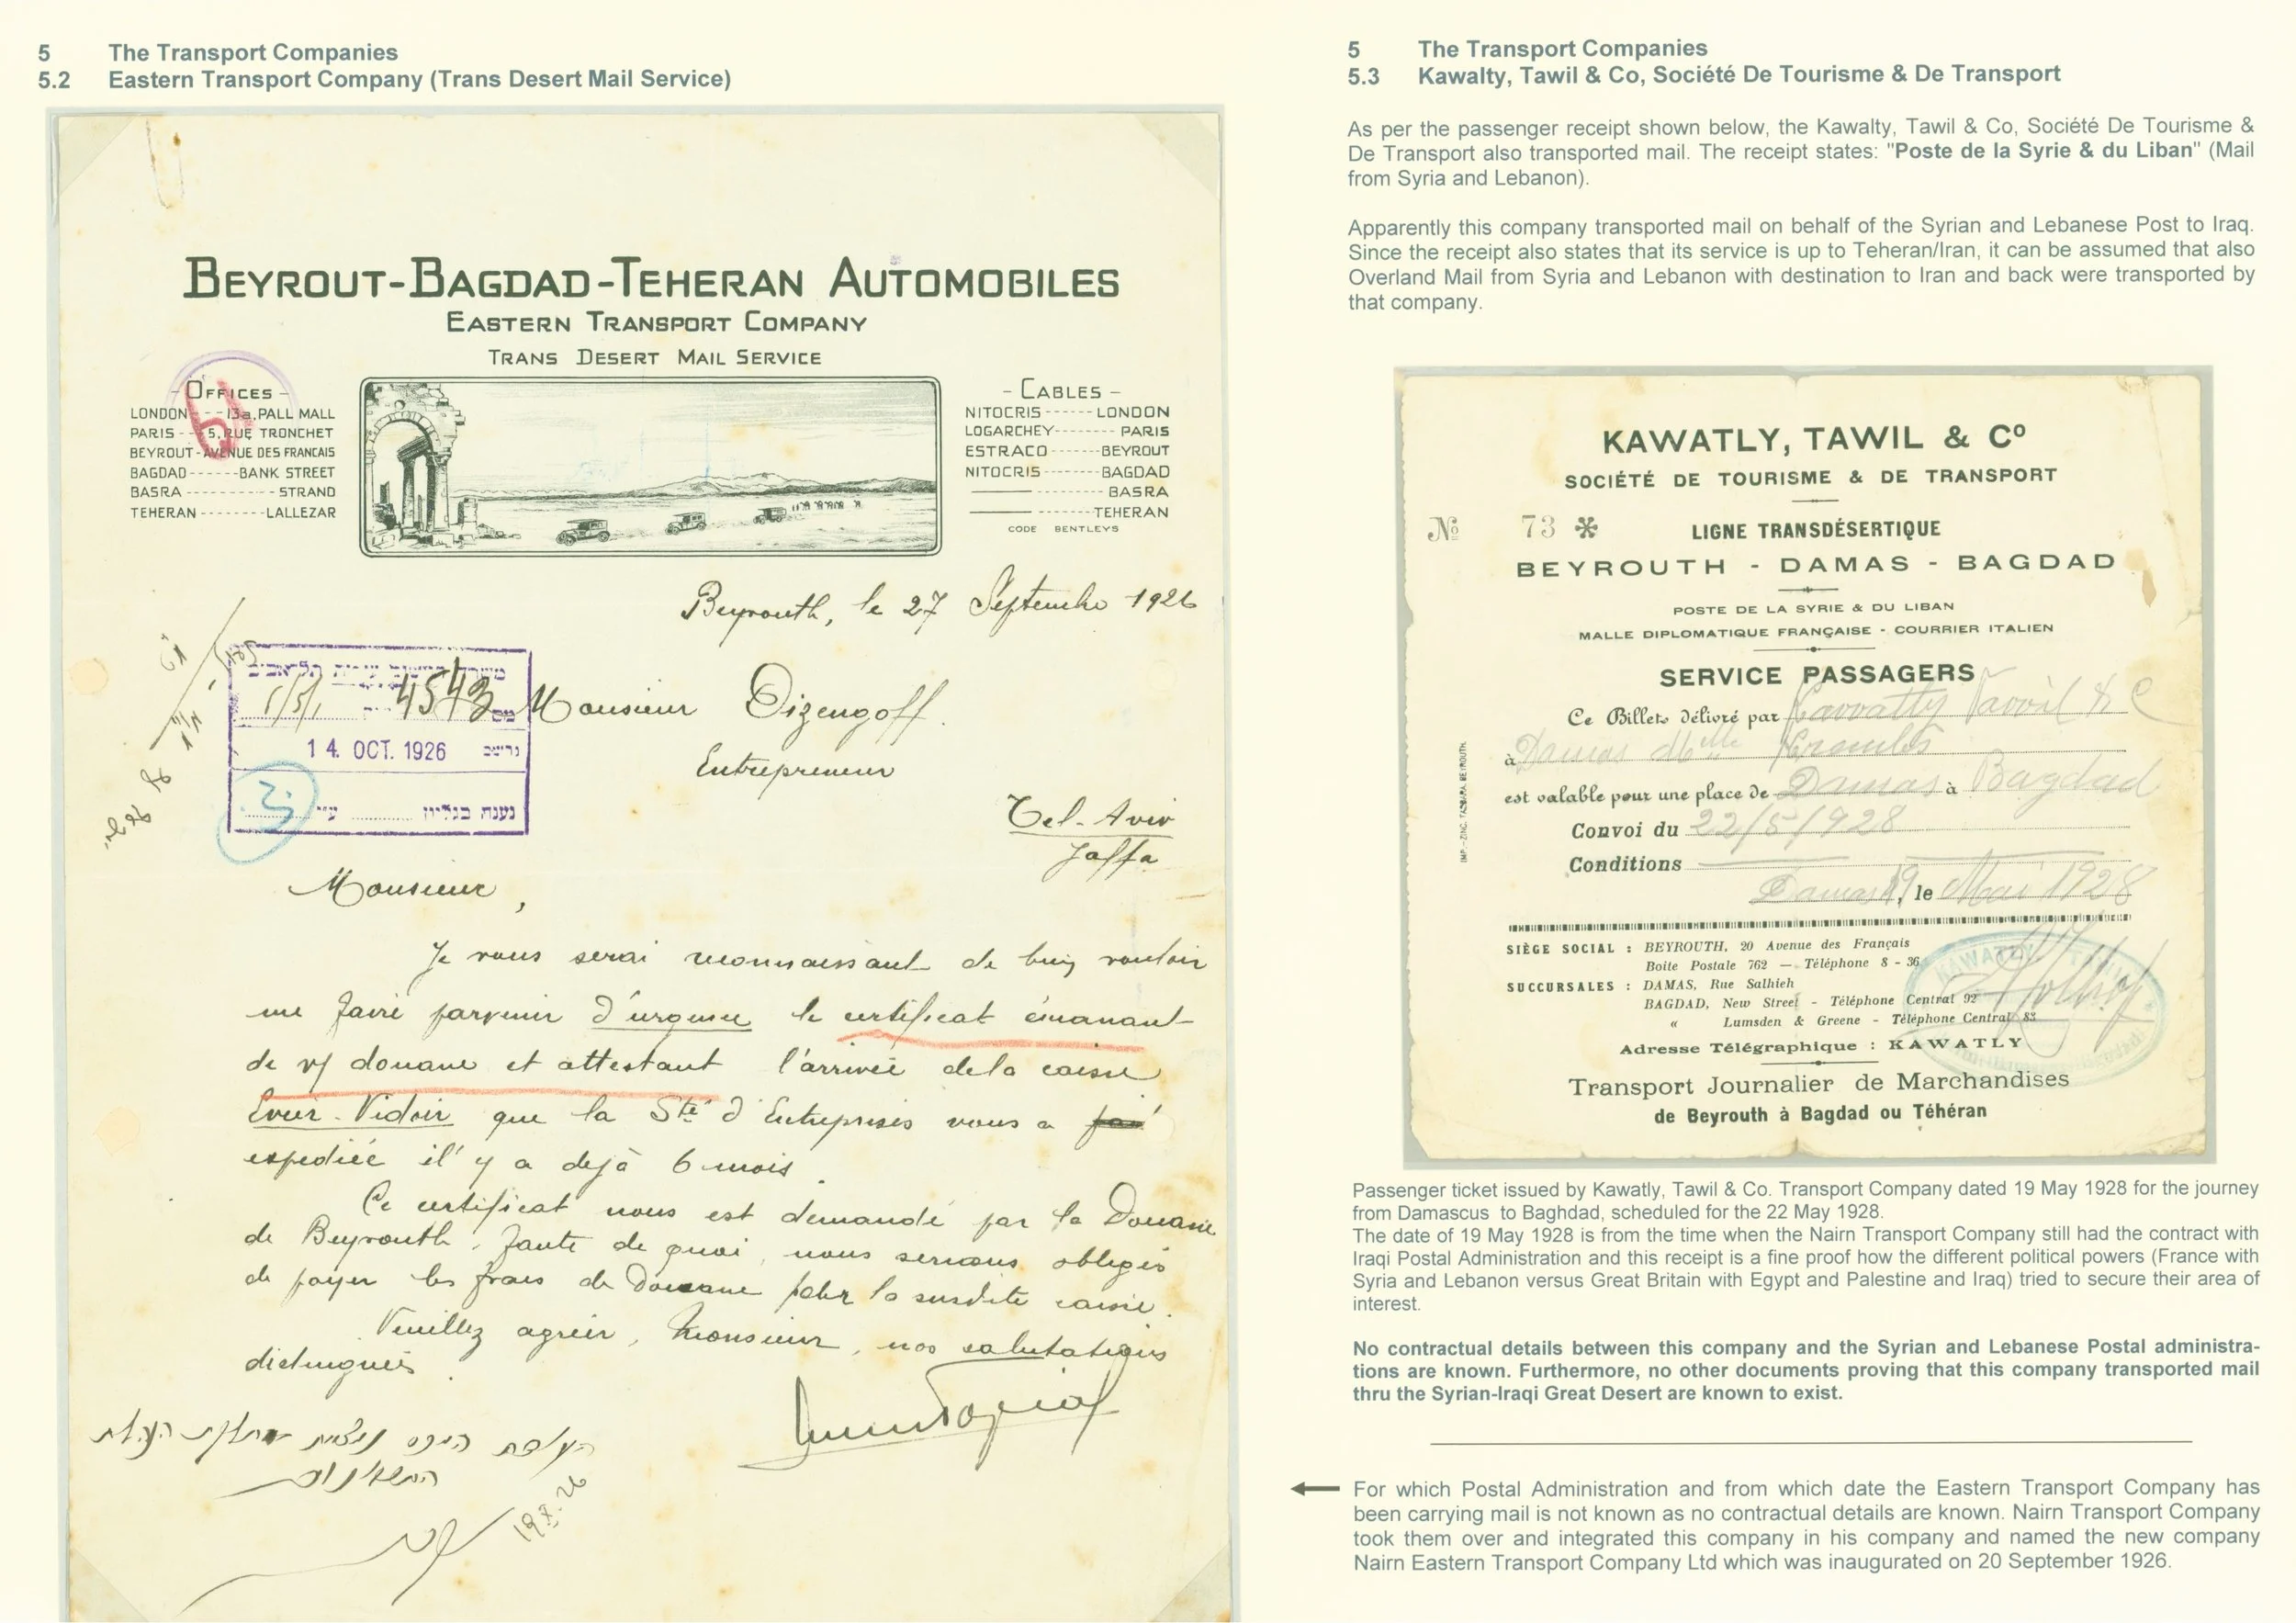 5 The Transport Companies
5.2 Eastern Transport Company (Trans Desert Mail Service)
BEYROUT-BAGDAD-TEHERAN AUTOMOBILES
EASTERN TRANSPORT COMPANY
TRANS DESERT MAIL SERVICE
- OFFICES -
LONDON - - - 13a, PALL MALL
PARIS - - 5, RUE TRONCHET
BEYROUT - AVENUE DES FRANCAIS
BAGDAD - - - - - - BANK STREET
BASRA - - - - - - - - - - - STRAND
TEHERAN - - - - - - - - LALLEZAR
- CABLES -
NITOCRIS - - - - - - LONDON
LOGARCHEY - - - - - - - - PARIS
ESTRACO - - - - - - BEYROUT
NITOCRIS - - - - - - - BAGDAD
- - - - - - - - BASRA
- - - - - - TEHERAN
CODE BENTLEYS
Beyrouth, le 27 Septembre 1926
4543
14. OCT. 1926 נרשם
נענה בגליון ........... ע"י
Monsieur Dizengoff.
Entrepreneur
Tel-Aviv
Jaffa
Monsieur,
Je vous serai reconnaissant de bien vouloir
me faire parvenir d'urgence le certificat émanant
de vf douane et attestant l'arrivée de la caisse
que la Sté d'Entreprises vous a
expediée il y a dejà 6 mois.
Ce certificat nous est demandé par la Douane
de Beyrouth, faute de quoi, nous serions obligés
de payer les frais de Douane pour la susdite caisse.
Veuillez agréer, Monsieur, nos salutations
distinguées.
19.X.26
5 The Transport Companies
5.3 Kawalty, Tawil & Co, Société De Tourisme & De Transport
As per the passenger receipt shown below, the Kawalty, Tawil & Co, Société De Tourisme &
De Transport also transported mail. The receipt states: "Poste de la Syrie & du Liban" (Mail
from Syria and Lebanon).
Apparently this company transported mail on behalf of the Syrian and Lebanese Post to Iraq.
Since the receipt also states that its service is up to Teheran/Iran, it can be assumed that also
Overland Mail from Syria and Lebanon with destination to Iran and back were transported by
that company.
KAWATLY, TAWIL & Cº
SOCIÉTÉ DE TOURISME & DE TRANSPORT
Nº 73 *
LIGNE TRANSDÉSERTIQUE
BEYROUTH - DAMAS - BAGDAD
POSTE DE LA SYRIE & DU LIBAN
MALLE DIPLOMATIQUE FRANÇAISE - COURRIER ITALIEN
SERVICE PASSAGERS
Ce Billet délivré par Kawatly Tawil & C
à Damas Melle
est valable pour une place de Damas à Bagdad
Convoi du 22/5/1928
Conditions
Damas 19, le Mai 1928
IMP.-ZINC. TABBARA BEYROUTH.
SIÈGE SOCIAL : BEYROUTH, 20 Avenue des Français
Boite Postale 762 — Téléphone 8 - 36
SUCCURSALES : DAMAS, Rue Salhieh
BAGDAD, New Street - Téléphone Central 92
« Lumsden & Greene - Téléphone Central 83
Adresse Télégraphique : KAWATLY
Transport Journalier de Marchandises
de Beyrouth à Bagdad ou Téhéran
Passenger ticket issued by Kawatly, Tawil & Co. Transport Company dated 19 May 1928 for the journey
from Damascus to Baghdad, scheduled for the 22 May 1928.
The date of 19 May 1928 is from the time when the Nairn Transport Company still had the contract with
Iraqi Postal Administration and this receipt is a fine proof how the different political powers (France with
Syria and Lebanon versus Great Britain with Egypt and Palestine and Iraq) tried to secure their area of
interest.
No contractual details between this company and the Syrian and Lebanese Postal administra-
tions are known. Furthermore, no other documents proving that this company transported mail
thru the Syrian-Iraqi Great Desert are known to exist.
For which Postal Administration and from which date the Eastern Transport Company has
been carrying mail is not known as no contractual details are known. Nairn Transport Company
took them over and integrated this company in his company and named the new company
Nairn Eastern Transport Company Ltd which was inaugurated on 20 September 1926.